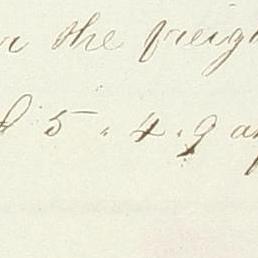 the freig
5 " 4 . 9 a